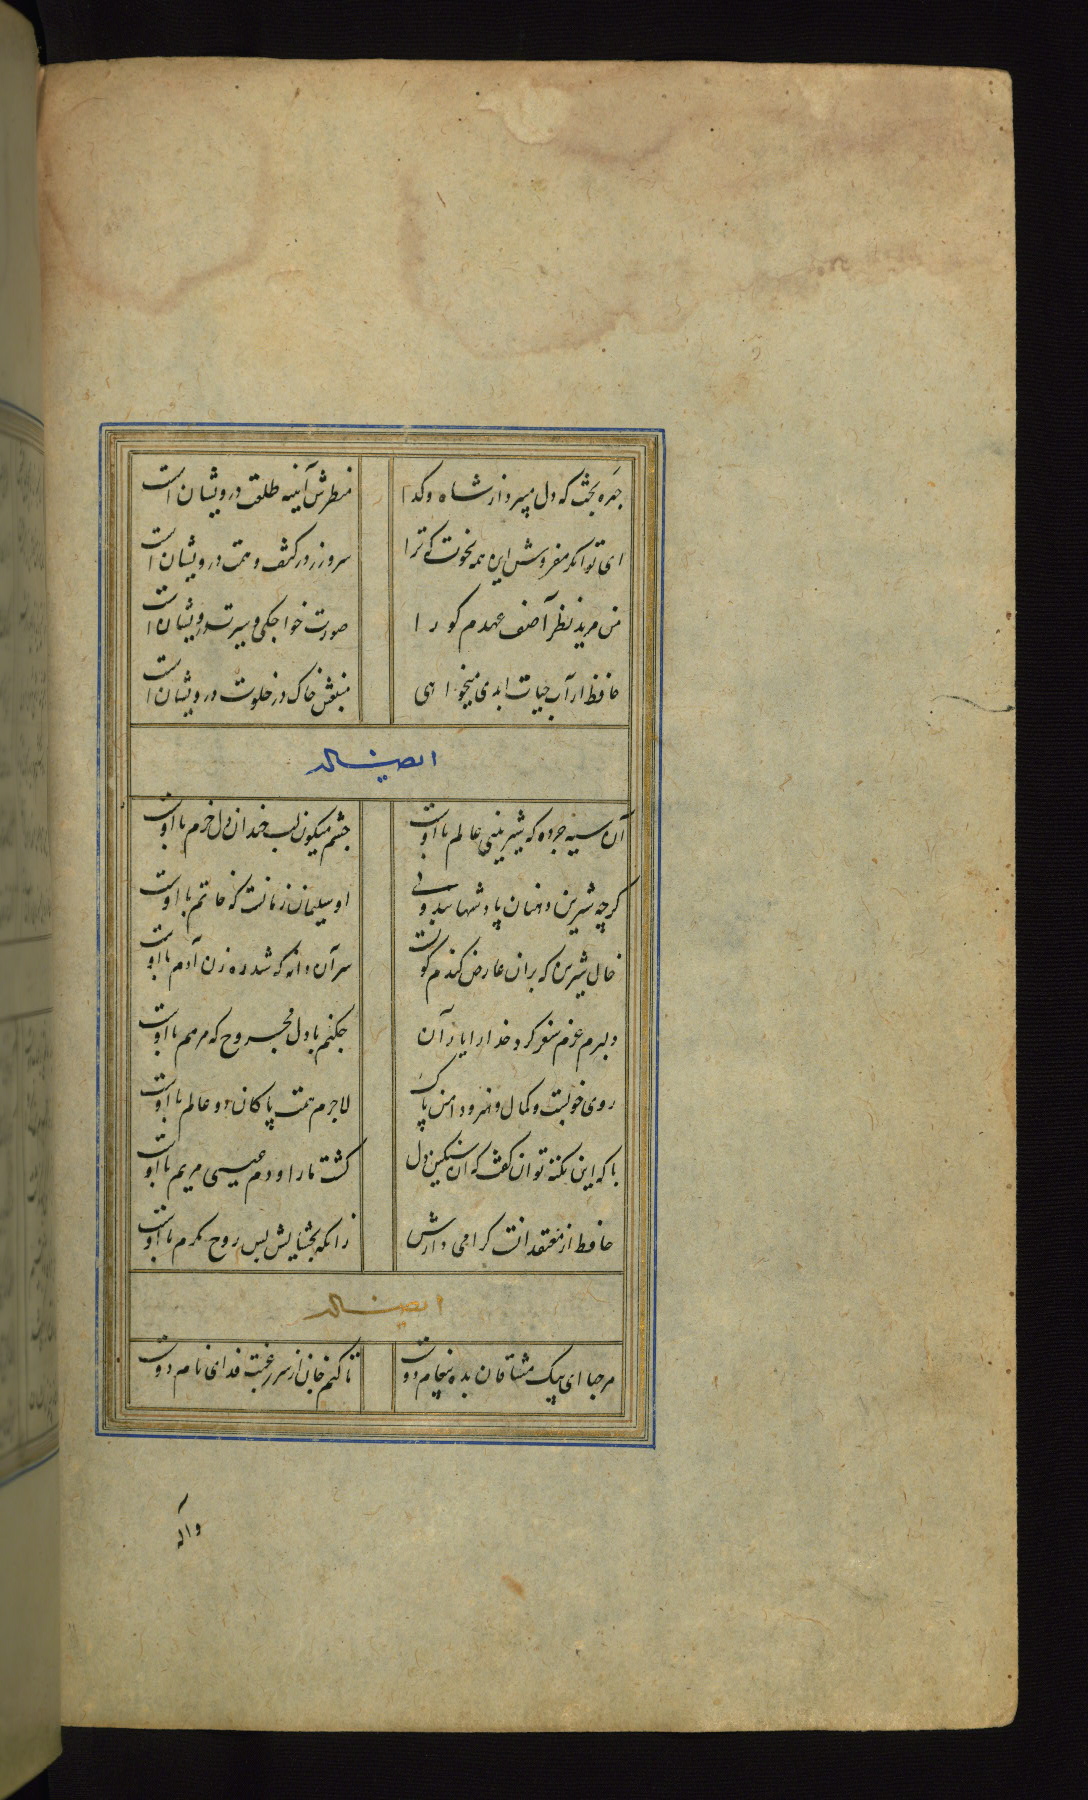 چهره بخت که دل میبرد از شاه و کدا منظرش آینه طلعت درویشان است
ای توانکر مفروش این همه نخوت که ترا سر و زر در کنف و همت درویشان است
من مرید نظر آصف عهدم کو را صورت خواجکی و سیرت درویشان است
حافظ ار آب حیات ابدی میخواهی منبعش خاک در خلوت درویشان است
ایضا له
آن سیه چرده که شیرینی عالم با اوست چشم میکون لب خندان دل خرم با اوست
کرچه شیرین دهنان پادشهانند ولی او سلیمان زمانست که خاتم با اوست
خال شیرین که بران عارض کندم کونست سر آن دانه که شد ره زن آدم با اوست
دلبرم عزم سفر کرد خدا را یاران چکنم با دل مجروح که مرهم با اوست
روی خوبست و کمال و هنر و دامن پاک لاجرم همت پاکان دو عالم با اوست
با که این نکته توان کفت که آن سنکین دل کشت ما را و دم عیسی مریم با اوست
حافظ از معتقدانست کرامی دارش زانکه بخشایش بس روح مکرم با اوست
ایضا له
مرحبا ای پیک مشتاقان بده پیغام دوست تا کنم جان از سر رغبت فدای نام دوست
واله